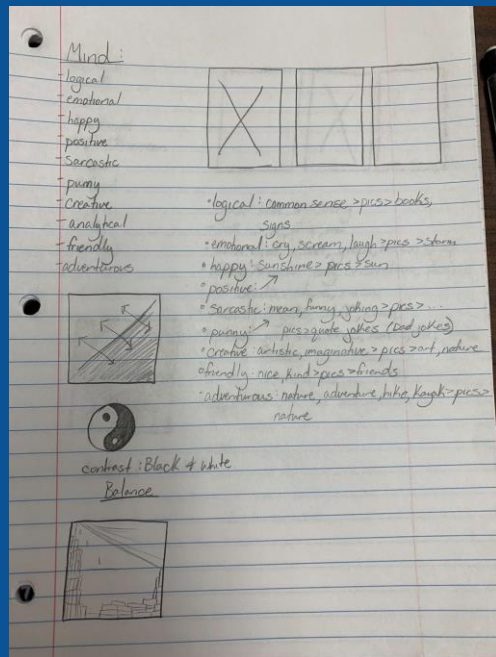 Mind:
- logical
- emotional
- happy
- positive
- Sarcastic
- punny
- Creative
- analytical
- friendly
- adventurous
• logical: common sense > pics > books,
signs
• emotional: cry, scream, laugh > pics > storm
• happy: sunshine > pics > sun
• positive: ↗
• sarcastic: mean, funny, joking > pics > ...
• punny: ↗ pics > quote jokes (bad jokes)
• Creative: artistic, imaginative > pics > art, nature
• friendly: nice, kind > pics > friends
• adventurous: nature, adventure, hike, kayak > pics >
nature
contrast: Black & white
Balance